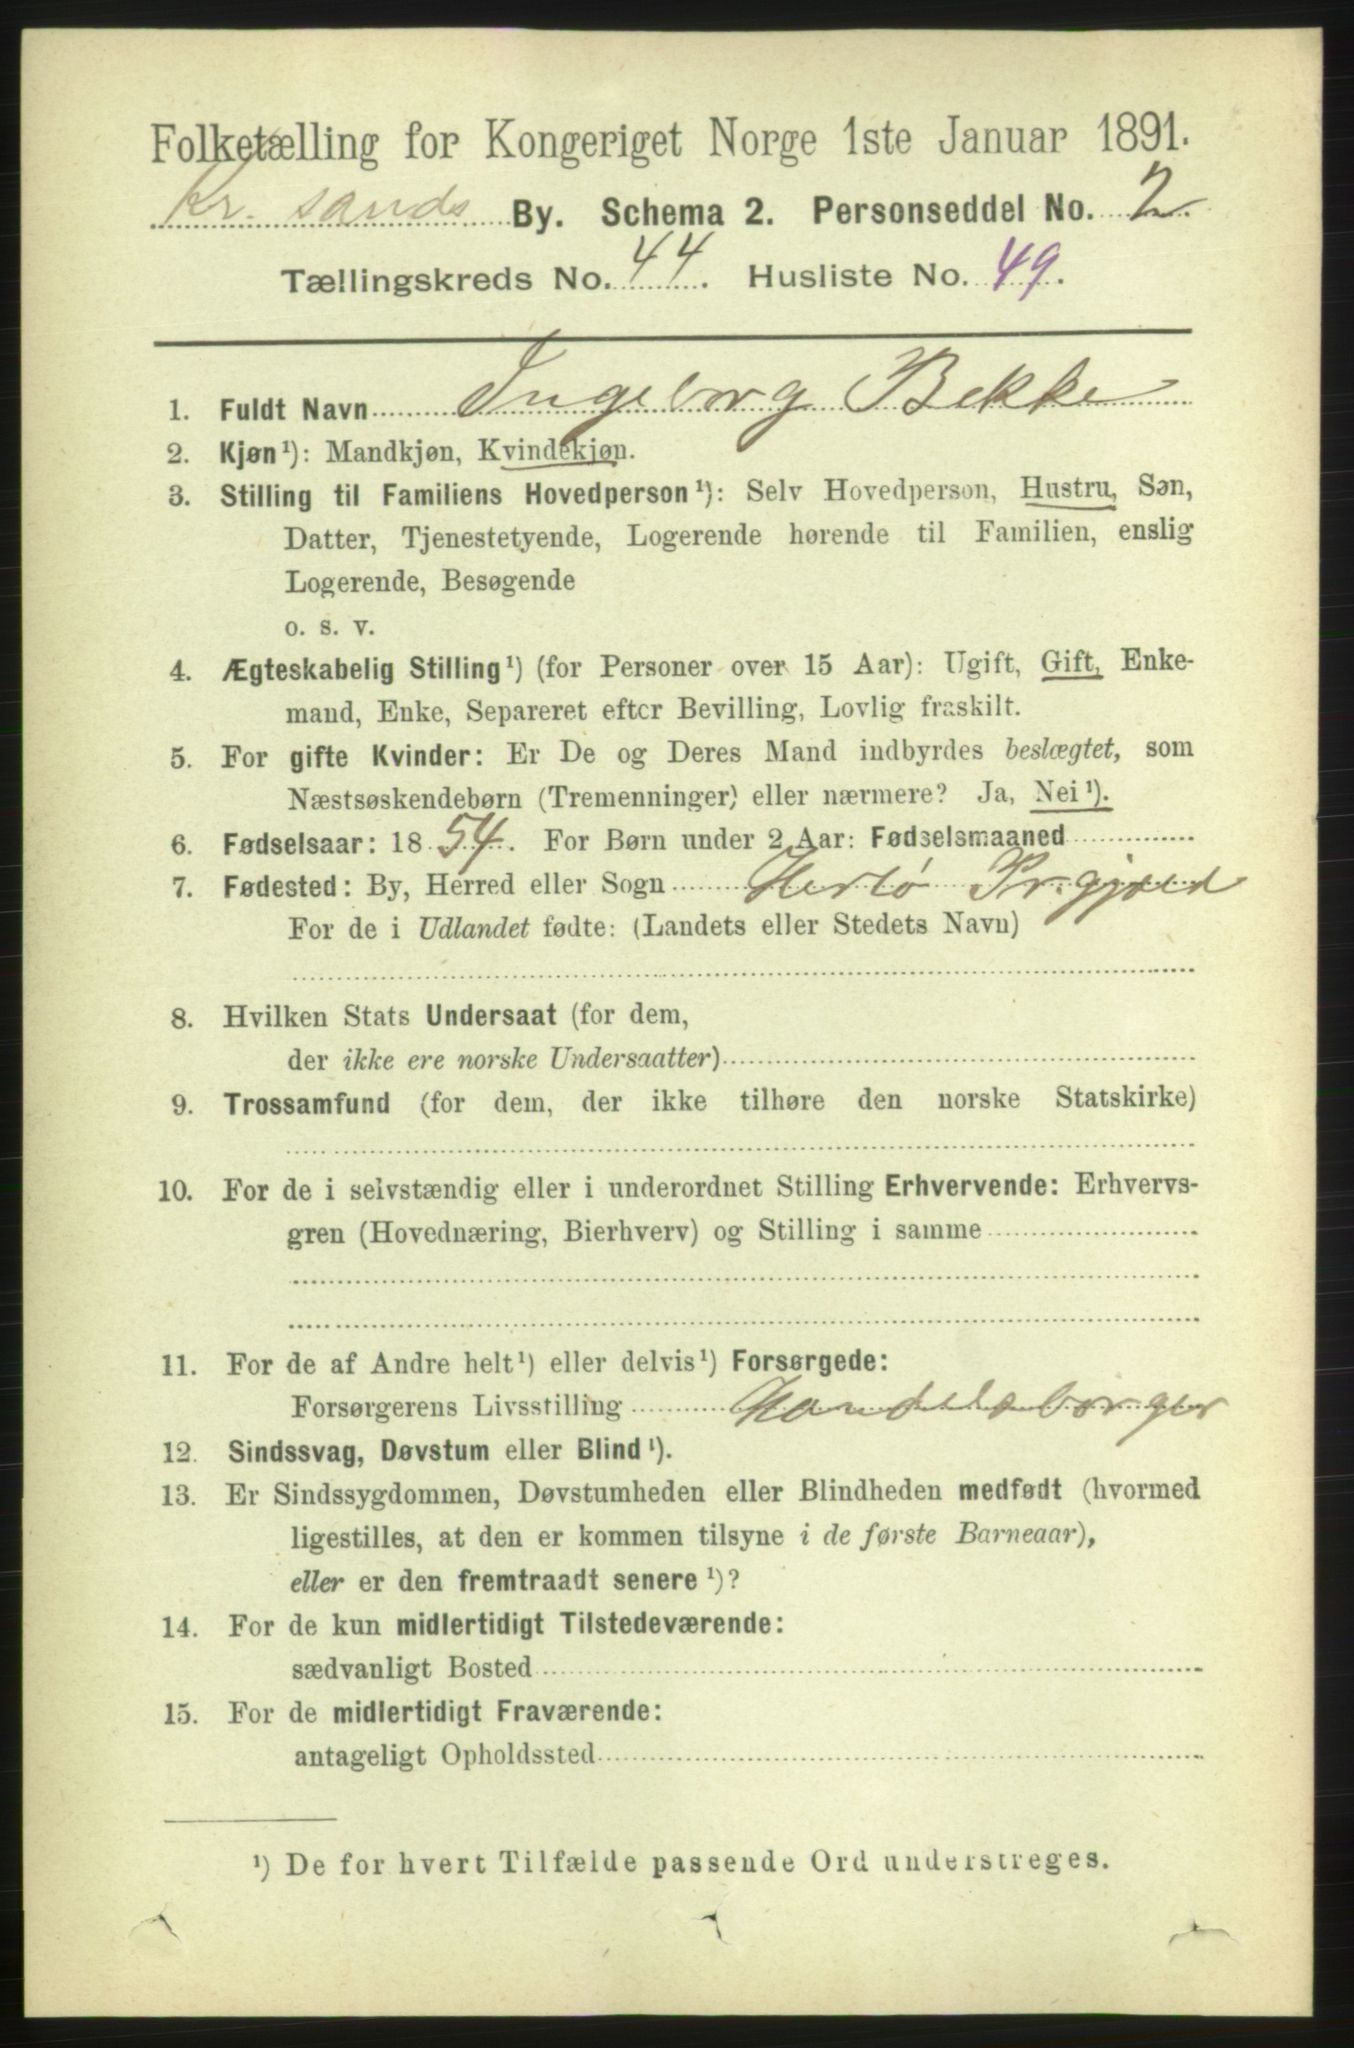 Folketælling for Kongeriget Norge 1ste Januar 1891.
Kr. sands By. Schema 2. Personseddel No. 2.
Tællingskreds No. 44. Husliste No. 49.
1. Fuldt Navn Ingeborg Bekke
2. Kjøn¹): Mandkjøn, Kvindekjøn.
3. Stilling til Familiens Hovedperson¹): Selv Hovedperson, Hustru, Søn,
Datter, Tjenestetyende, Logerende hørende til Familien, enslig
Logerende, Besøgende
o. s. v.
4. Ægteskabelig Stilling¹) (for Personer over 15 Aar): Ugift, Gift, Enke-
mand, Enke, Separeret efter Bevilling, Lovlig fraskilt.
5. For gifte Kvinder: Er De og Deres Mand indbyrdes beslægtet, som
Næstsøskendebørn (Tremenninger) eller nærmere? Ja, Nei¹).
6. Fødselsaar: 1854. For Børn under 2 Aar: Fødselsmaaned
7. Fødested: By, Herred eller Sogn Herlø Prgjæld
For de i Udlandet fødte: (Landets eller Stedets Navn)
8. Hvilken Stats Undersaat (for dem,
der ikke ere norske Undersaatter)
9. Trossamfund (for dem, der ikke tilhøre den norske Statskirke)
10. For de i selvstændig eller i underordnet Stilling Erhvervende: Erhvervs-
gren (Hovednæring, Bierhverv) og Stilling i samme
11. For de af Andre helt¹) eller delvis¹) Forsørgede:
Forsørgerens Livsstilling Handelsborger
12. Sindssvag, Døvstum eller Blind¹).
13. Er Sindssygdommen, Døvstumheden eller Blindheden medfødt (hvormed
ligestilles, at den er kommen tilsyne i de første Barneaar),
eller er den fremtraadt senere¹)?
14. For de kun midlertidigt Tilstedeværende:
sædvanligt Bosted
15. For de midlertidigt Fraværende:
antageligt Opholdssted
¹) De for hvert Tilfælde passende Ord understreges.